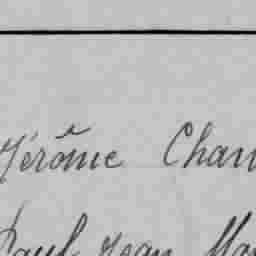 Jérôme Chan
Paul Jean Mar